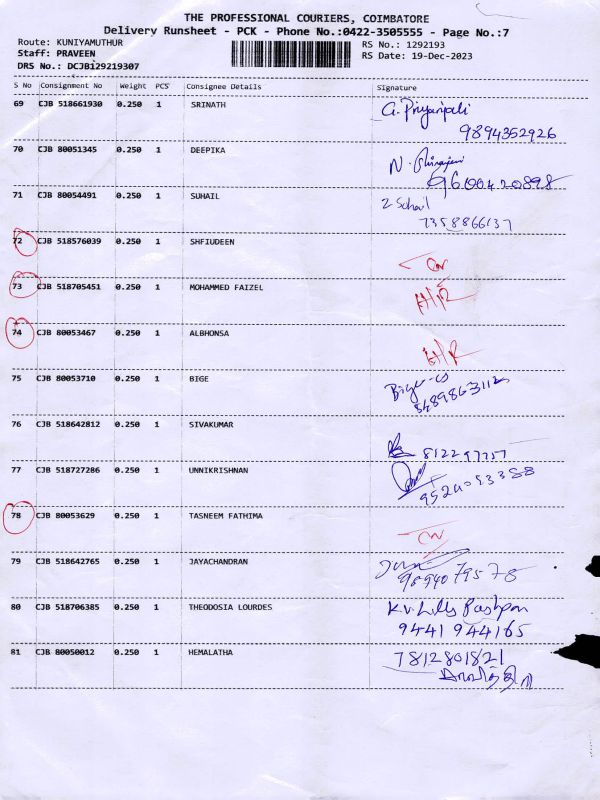 THE PROFESSIONAL COURIERS, COIMBATORE
Delivery Runsheet - PCK - Phone No.:0422-3505555 - Page No.:7
Route: KUNIYAMUTHUR
RS No.: 1292193
Staff: PRAVEEN
RS Date: 19-Dec-2023
DRS No.: DCJB129219307
S No Consignment No Weight PCS Consignee Details Signature
69 CJB 518661930 0.250 1 SRINATH G. Priyanjali
9894352926
70 CJB 80051345 0.250 1 DEEPIKA
9600420898
71 CJB 80054491 0.250 1 SUHAIL Suhail
7358866137
72 CJB 518576039 0.250 1 SHFIUDEEN
73 CJB 518705451 0.250 1 MOHAMMED FAIZEL H/R
74 CJB 80053467 0.250 1 ALBHONSA H/R
75 CJB 80053710 0.250 1 BIGE Bige
76 CJB 518642812 0.250 1 SIVAKUMAR
77 CJB 518727286 0.250 1 UNNIKRISHNAN
78 CJB 80053629 0.250 1 TASNEEM FATHIMA
79 CJB 518642765 0.250 1 JAYACHANDRAN
9894079578
80 CJB 518706385 0.250 1 THEODOSIA LOURDES
9441944165
81 CJB 80050012 0.250 1 HEMALATHA 7812801821